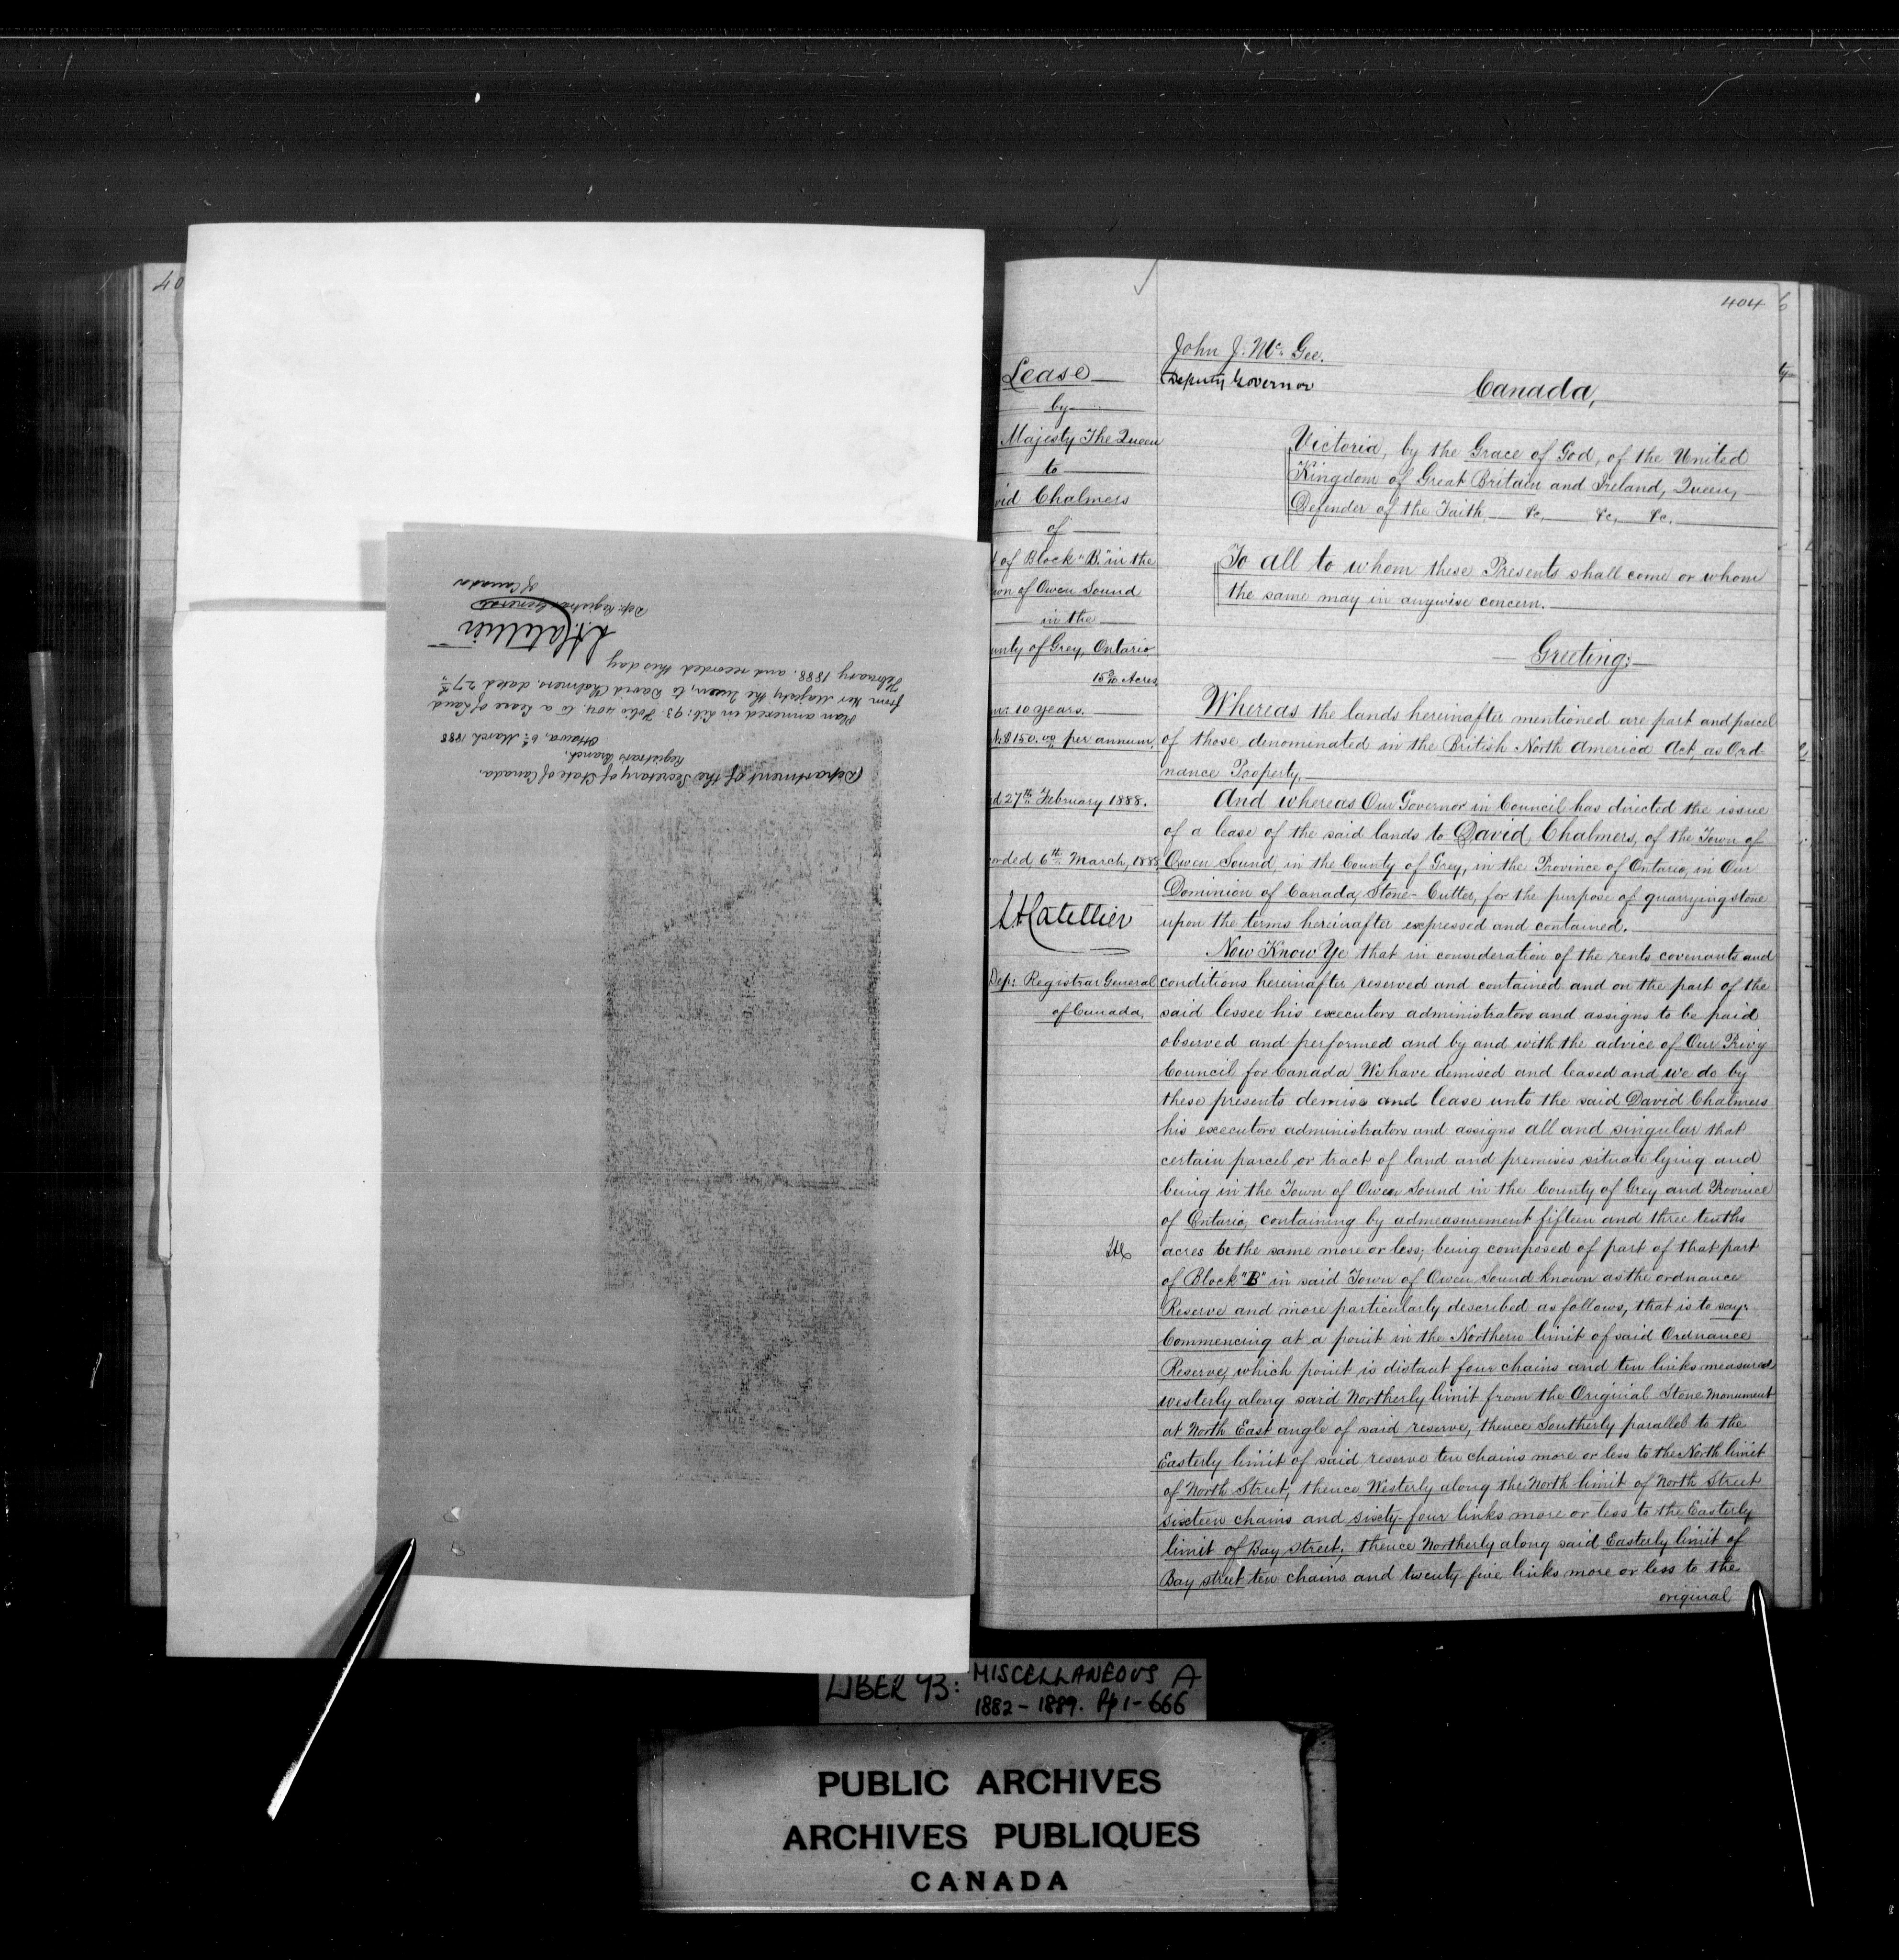 40
Department of the Secretary of State of Canada.
Registrar's Branch.
Ottawa, 6th March 1888
Plan annexed in Lib: 93. Folio 404. to a lease of Land
from Her Majesty the Queen, to David Chalmers. dated 27th
February 1888. and recorded this day
L.A. Catellier
Dep: Registrar General
of Canada
404
Lease
by
Majesty The Queen
to
vid Chalmers
of
t of Block "B." in the
wn of Owen Sound
in the
unty of Grey, Ontario
15 3/10 Acres
m: 10 years.
$150.00 per annum,
d 27th February 1888.
orded 6th March, 1888
L.A. Catellier
Dep: Registrar General
of Canada,
John J. McGee.
Deputy Governor
Canada,
Victoria, by the Grace of God, of the United
Kingdom of Great Britain and Ireland, Queen,
Defender of the Faith &c, &c, &c.
To all to whom these Presents shall come or whom
the same may in anywise concern.
Greeting:
Whereas the lands hereinafter mentioned are part and parcel
of those denominated in the British North America Act, as Ord-
nance Property,
And whereas Our Governor in Council has directed the issue
of a lease of the said lands to David Chalmers, of the Town of
Owen Sound, in the County of Grey, in the Province of Ontario, in Our
Dominion of Canada, Stone-Cutter, for the purpose of quarrying stone
upon the terms hereinafter expressed and contained.
Now Know Ye that in consideration of the rents covenants and
conditions hereinafter reserved and contained and on the part of the
said lessee his executors administrators and assigns to be paid
observed and performed and by and with the advice of Our Privy
Council for Canada We have demised and leased and we do by
these presents demise and lease unto the said David Chalmers
his executors administrators and assigns all and singular that
certain parcel or tract of land and premises situate lying and
being in the Town of Owen Sound in the County of Grey and Province
of Ontario, containing by admeasurement fifteen and three tenths
acres be the same more or less; being composed of part of that part
of Block "B" in said Town of Owen Sound known as the ordnance
Reserve and more particularly described as follows, that is to say:
Commencing at a point in the Northern limit of said Ordnance
Reserve, which point is distant four chains and ten links measured
westerly along said Northerly limit from the Original Stone Monument
at North East angle of said reserve, thence Southerly parallel to the
Easterly limit of said reserve ten chains more or less to the North limit
of North Street, thence Westerly along the North limit of North Street
sixteen chains and sixty-four links more or less to the Easterly
limit of Bay street; thence Northerly along said Easterly limit of
Bay street ten chains and twenty-five links more or less to the
original
LIBER 93: MISCELLANEOUS A
1882-1889. Pp 1-666
PUBLIC ARCHIVES
ARCHIVES PUBLIQUES
CANADA